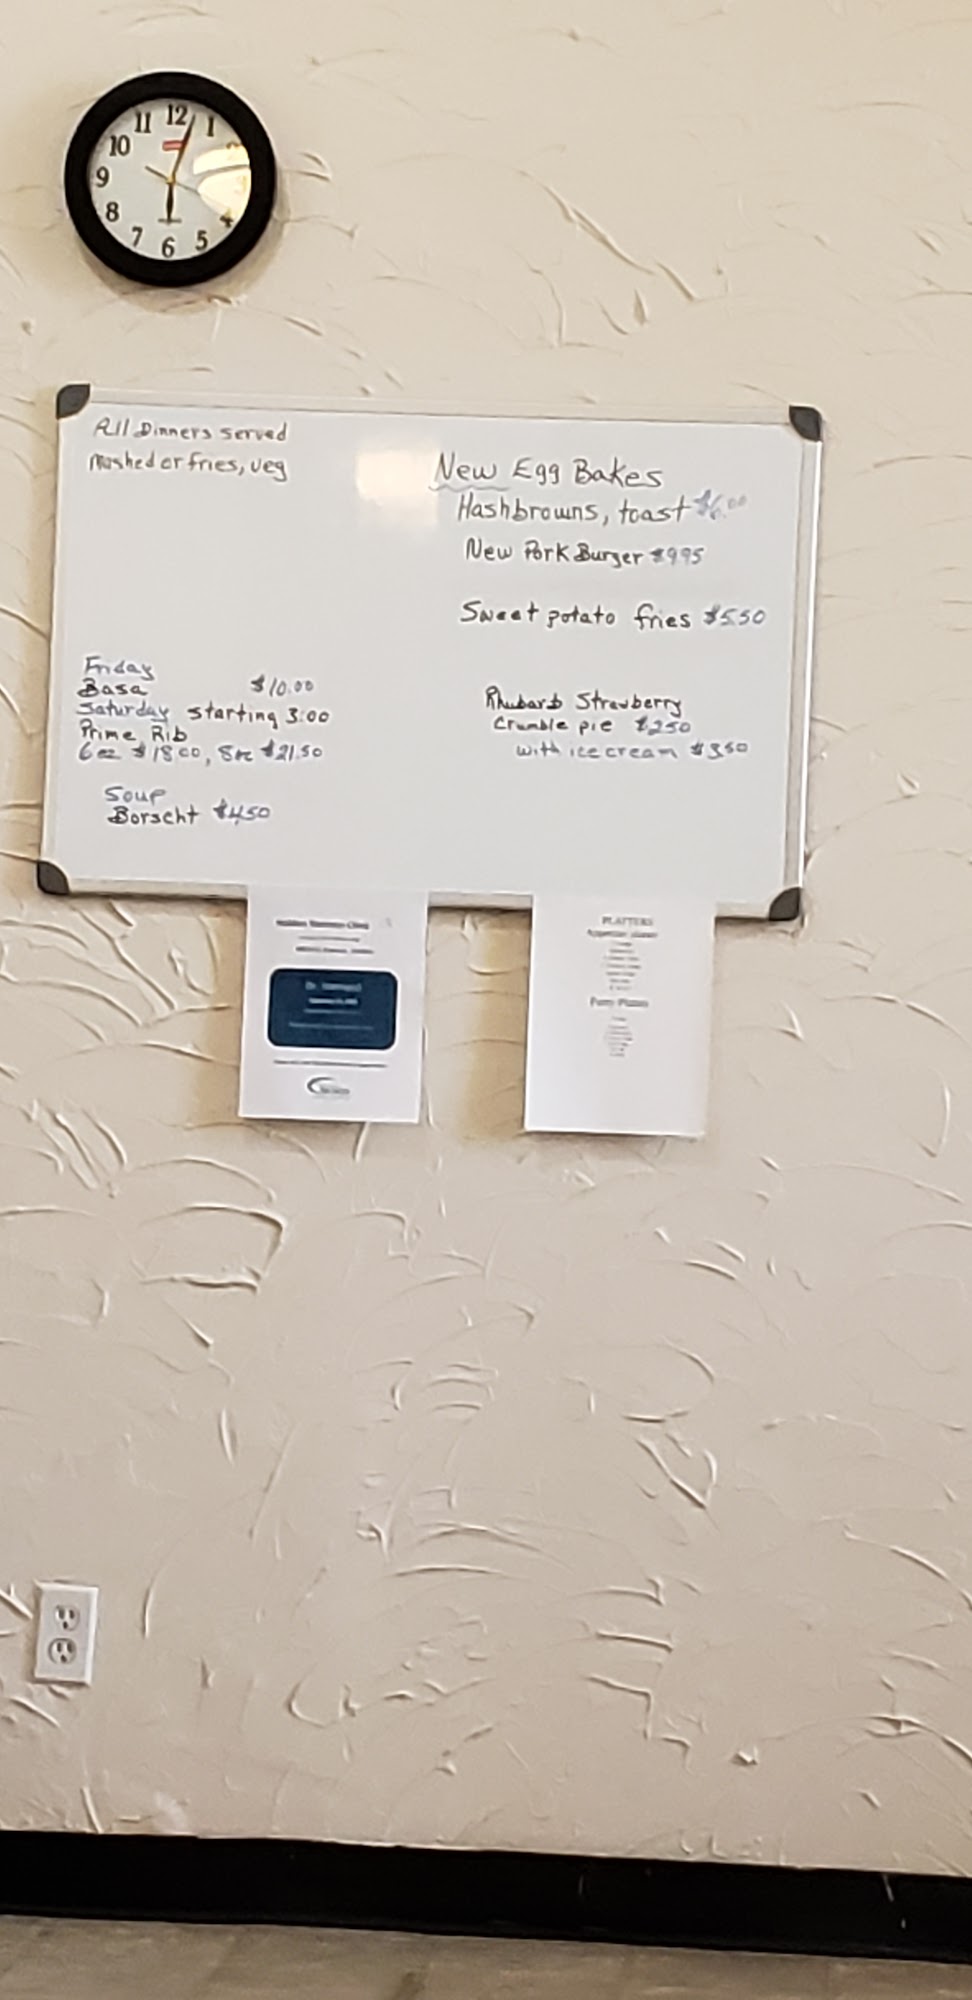 12
11
1
10
9
8
4
7
6
5
All Dinners served
Mashed or fries, veg
Friday
Basa $10.00
Saturday starting 3:00
Prime Rib
6 oz $18.00, 8oz $21.50
Soup
Borscht $4.50
New Egg Bakes
Hashbrowns, toast $6.00
New Pork Burger $9.95
Sweet potato fries $5.50
Rhubarb Strawberry
Crumble pie $2.50
with ice cream $3.50
PLATTERS